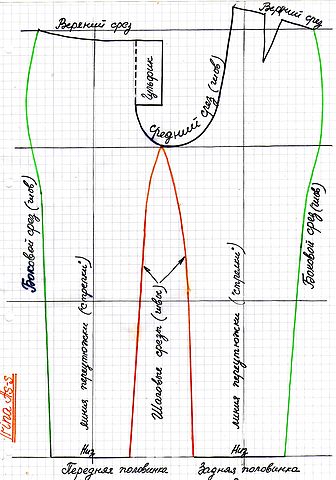 Верхний срез
Верхний срез
Гульфик
Средний срез (шов)
Боковой срез (шов)
линия переутюжки (стрелки")
Шаговые срезы (швы)
линия переутюжки (стрелки")
Боковой срез (шов)
Irina As-s
Низ
Низ
Передняя половинка
Задняя половинка